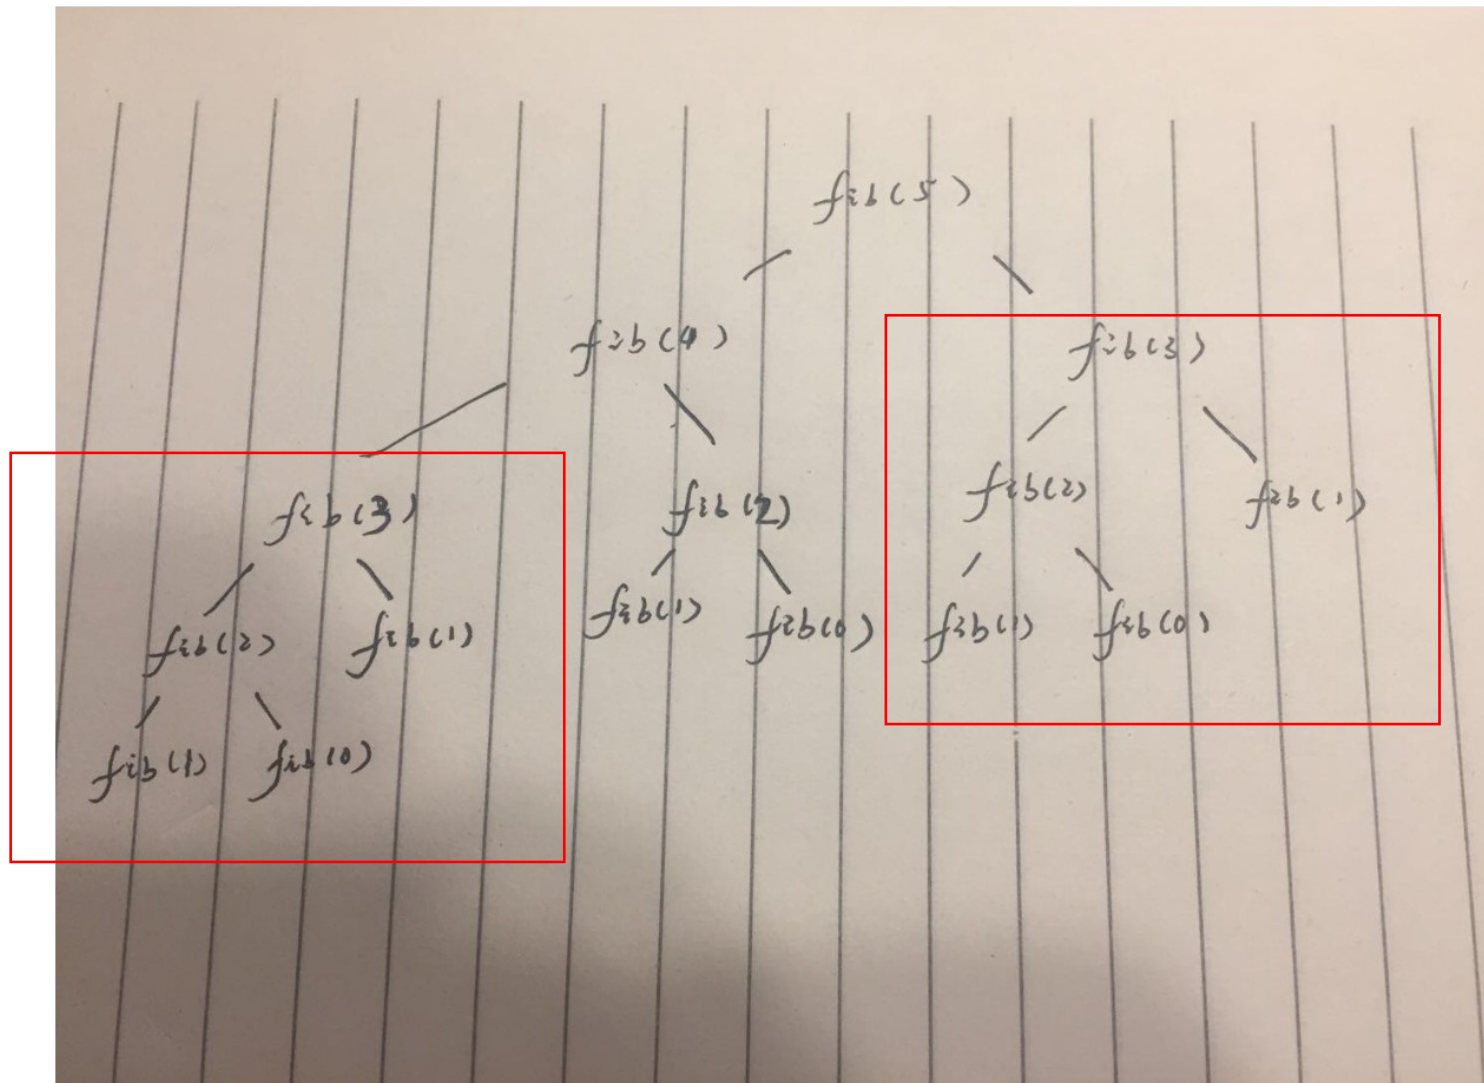 fib(5)
fib(4) fib(3)
fib(3) fib(2) fib(2) fib(1)
fib(2) fib(1) fib(1) fib(0) fib(1) fib(0)
fib(1) fib(0)